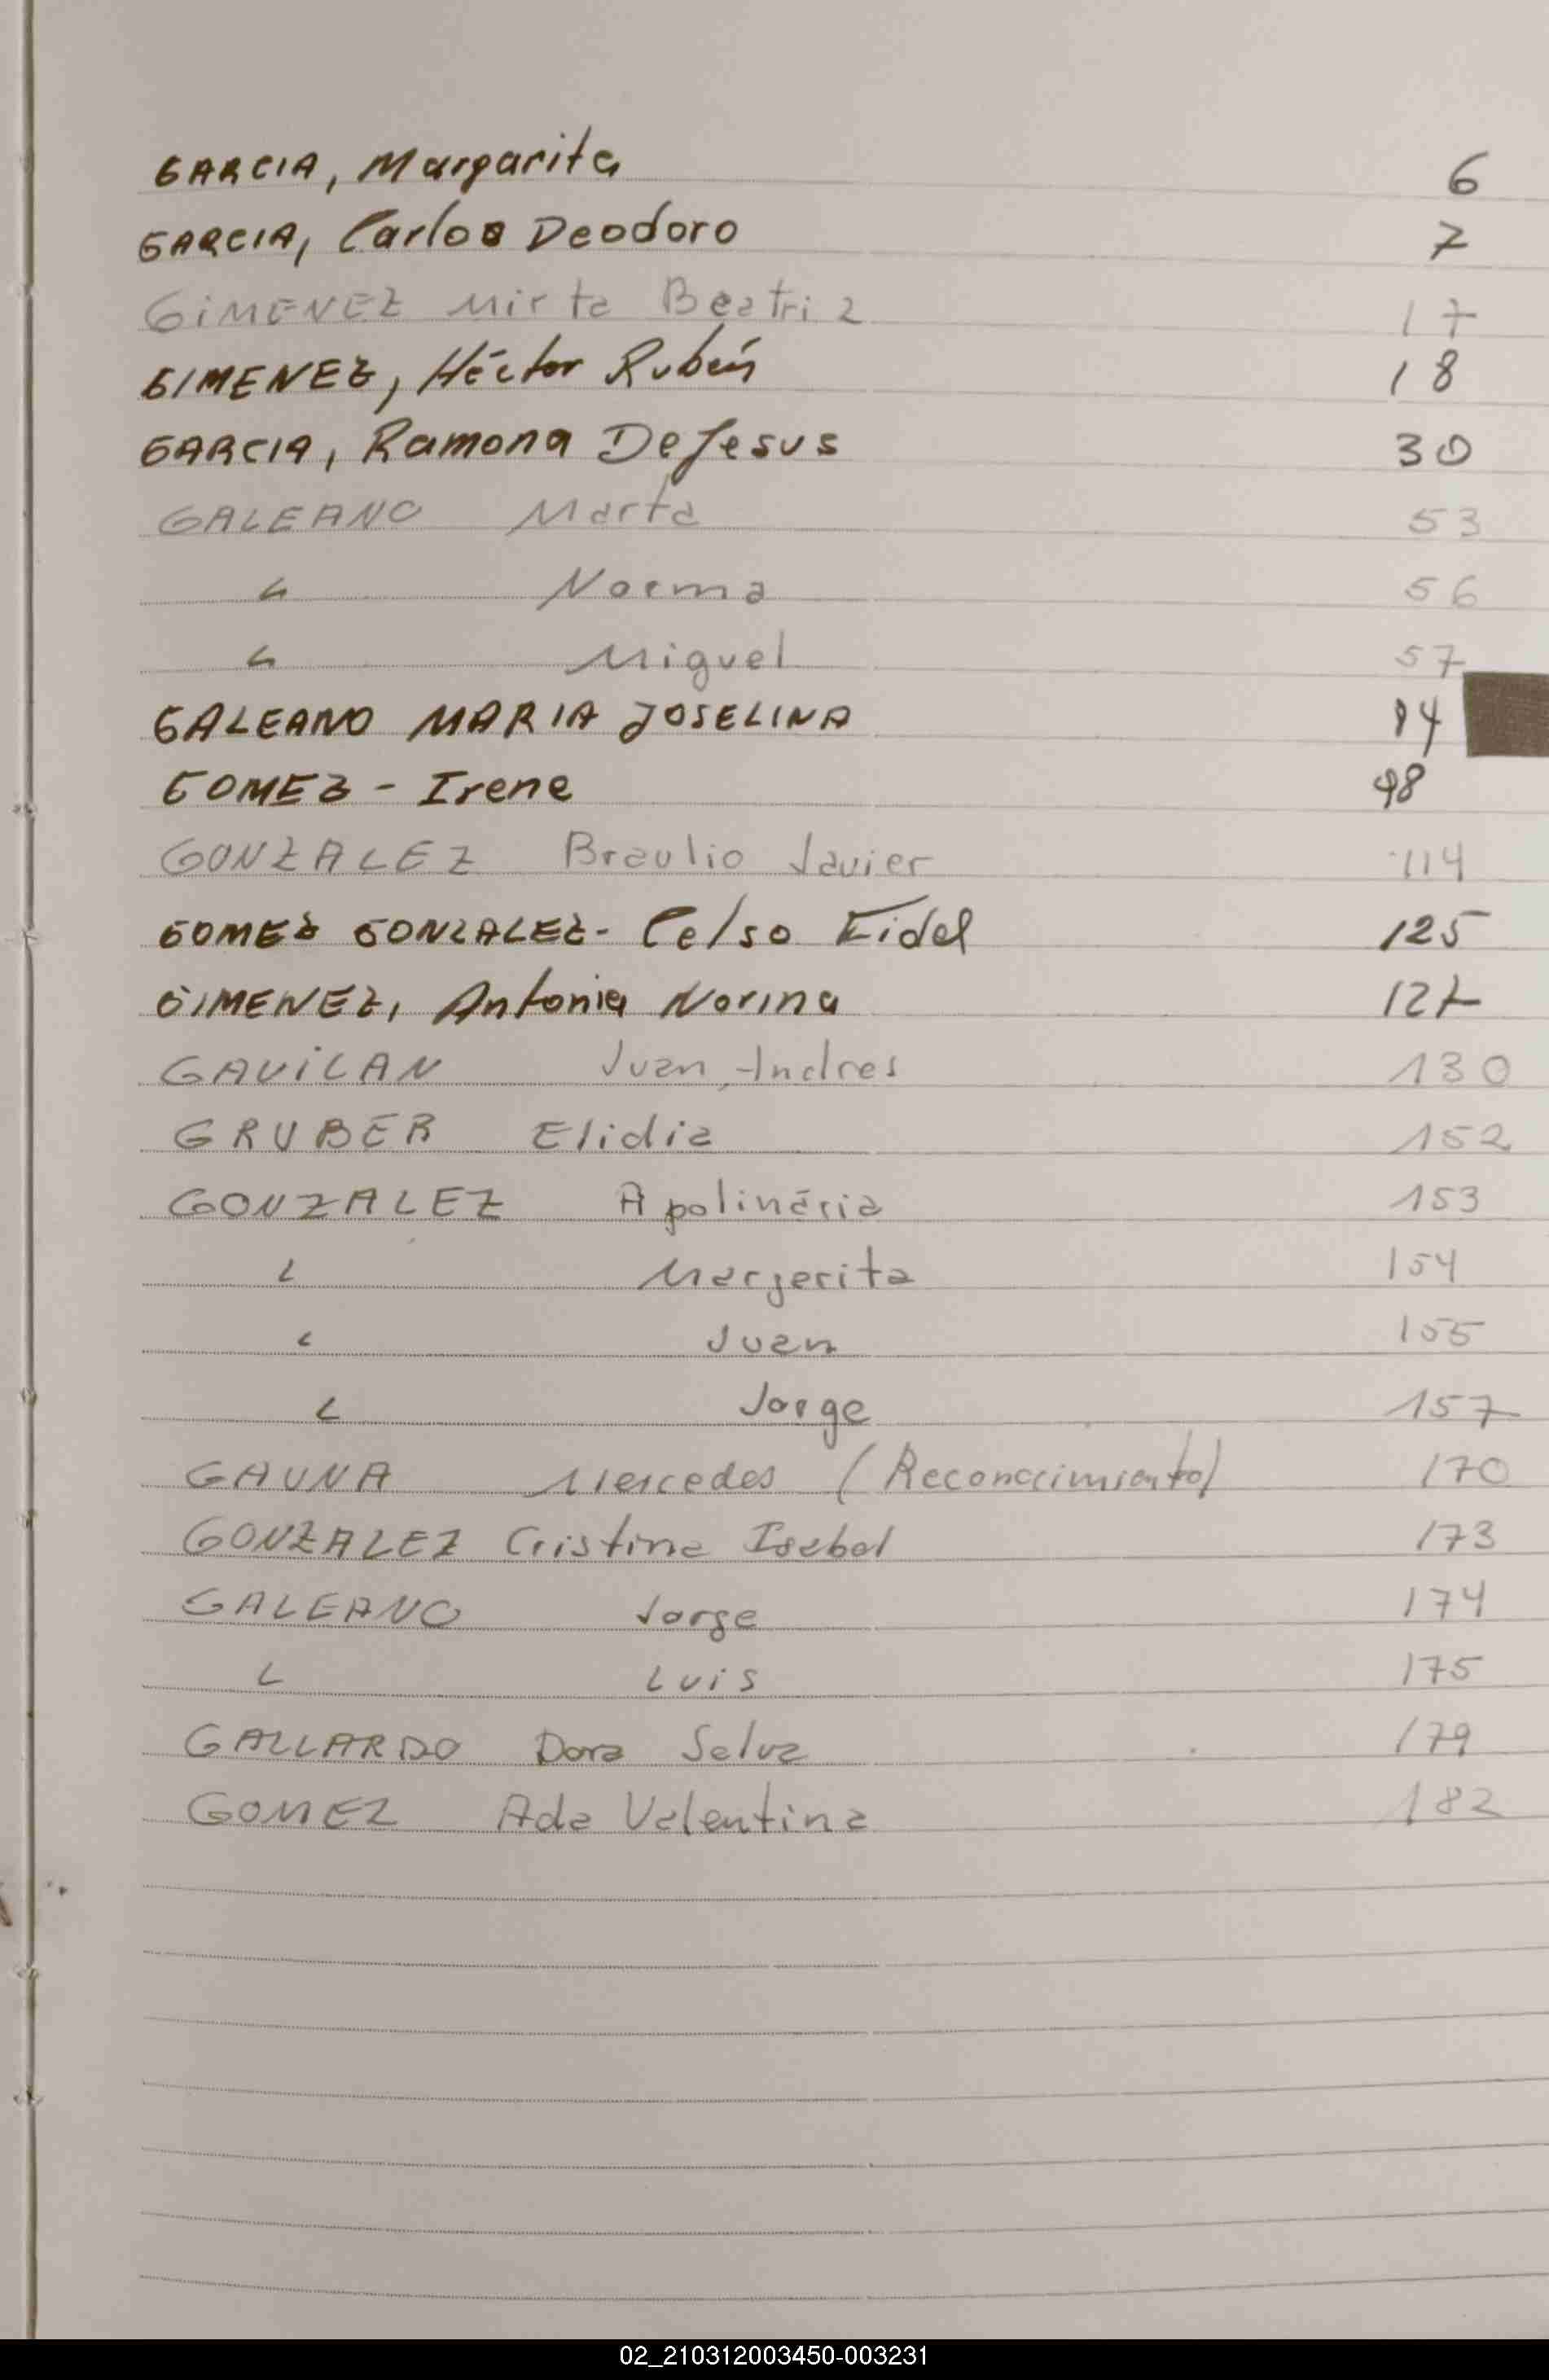 GARCIA, Margarita 6
GARCIA, Carlos Deodoro 7
GIMENEZ Mirta Beatriz 17
GIMENEZ, Héctor Rubén 18
GARCIA, Ramona De Jesus 30
GALEANO Marta 53
" Norma 56
" Miguel 57
GALEANO MARIA JOSELINA
GOMEZ - Irene 98
GONZALEZ Braulio Javier 114
GOMEZ GONZALEZ - Celso Fidel 125
GIMENEZ, Antonia Norma 127
GAVILAN Juan Andres 130
GRUBER Elidia 152
GONZALEZ Apolinária 153
" Margarita 154
" Juan 155
" Jorge 157
GAUNA Mercedes (Reconocimiento) 170
GONZALEZ Cristina Isabel 173
GALEANO Jorge 174
" Luis 175
GALLARDO Dora Selva 179
GOMEZ Ada Valentina 182
02_210312003450-003231